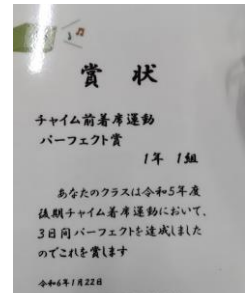 賞状
チャイム前着席運動
パーフェクト賞
1年 1組
あなたのクラスは令和5年度
後期チャイム着席運動において、
3日間パーフェクトを達成しました
のでこれを賞します
令和6年1月22日